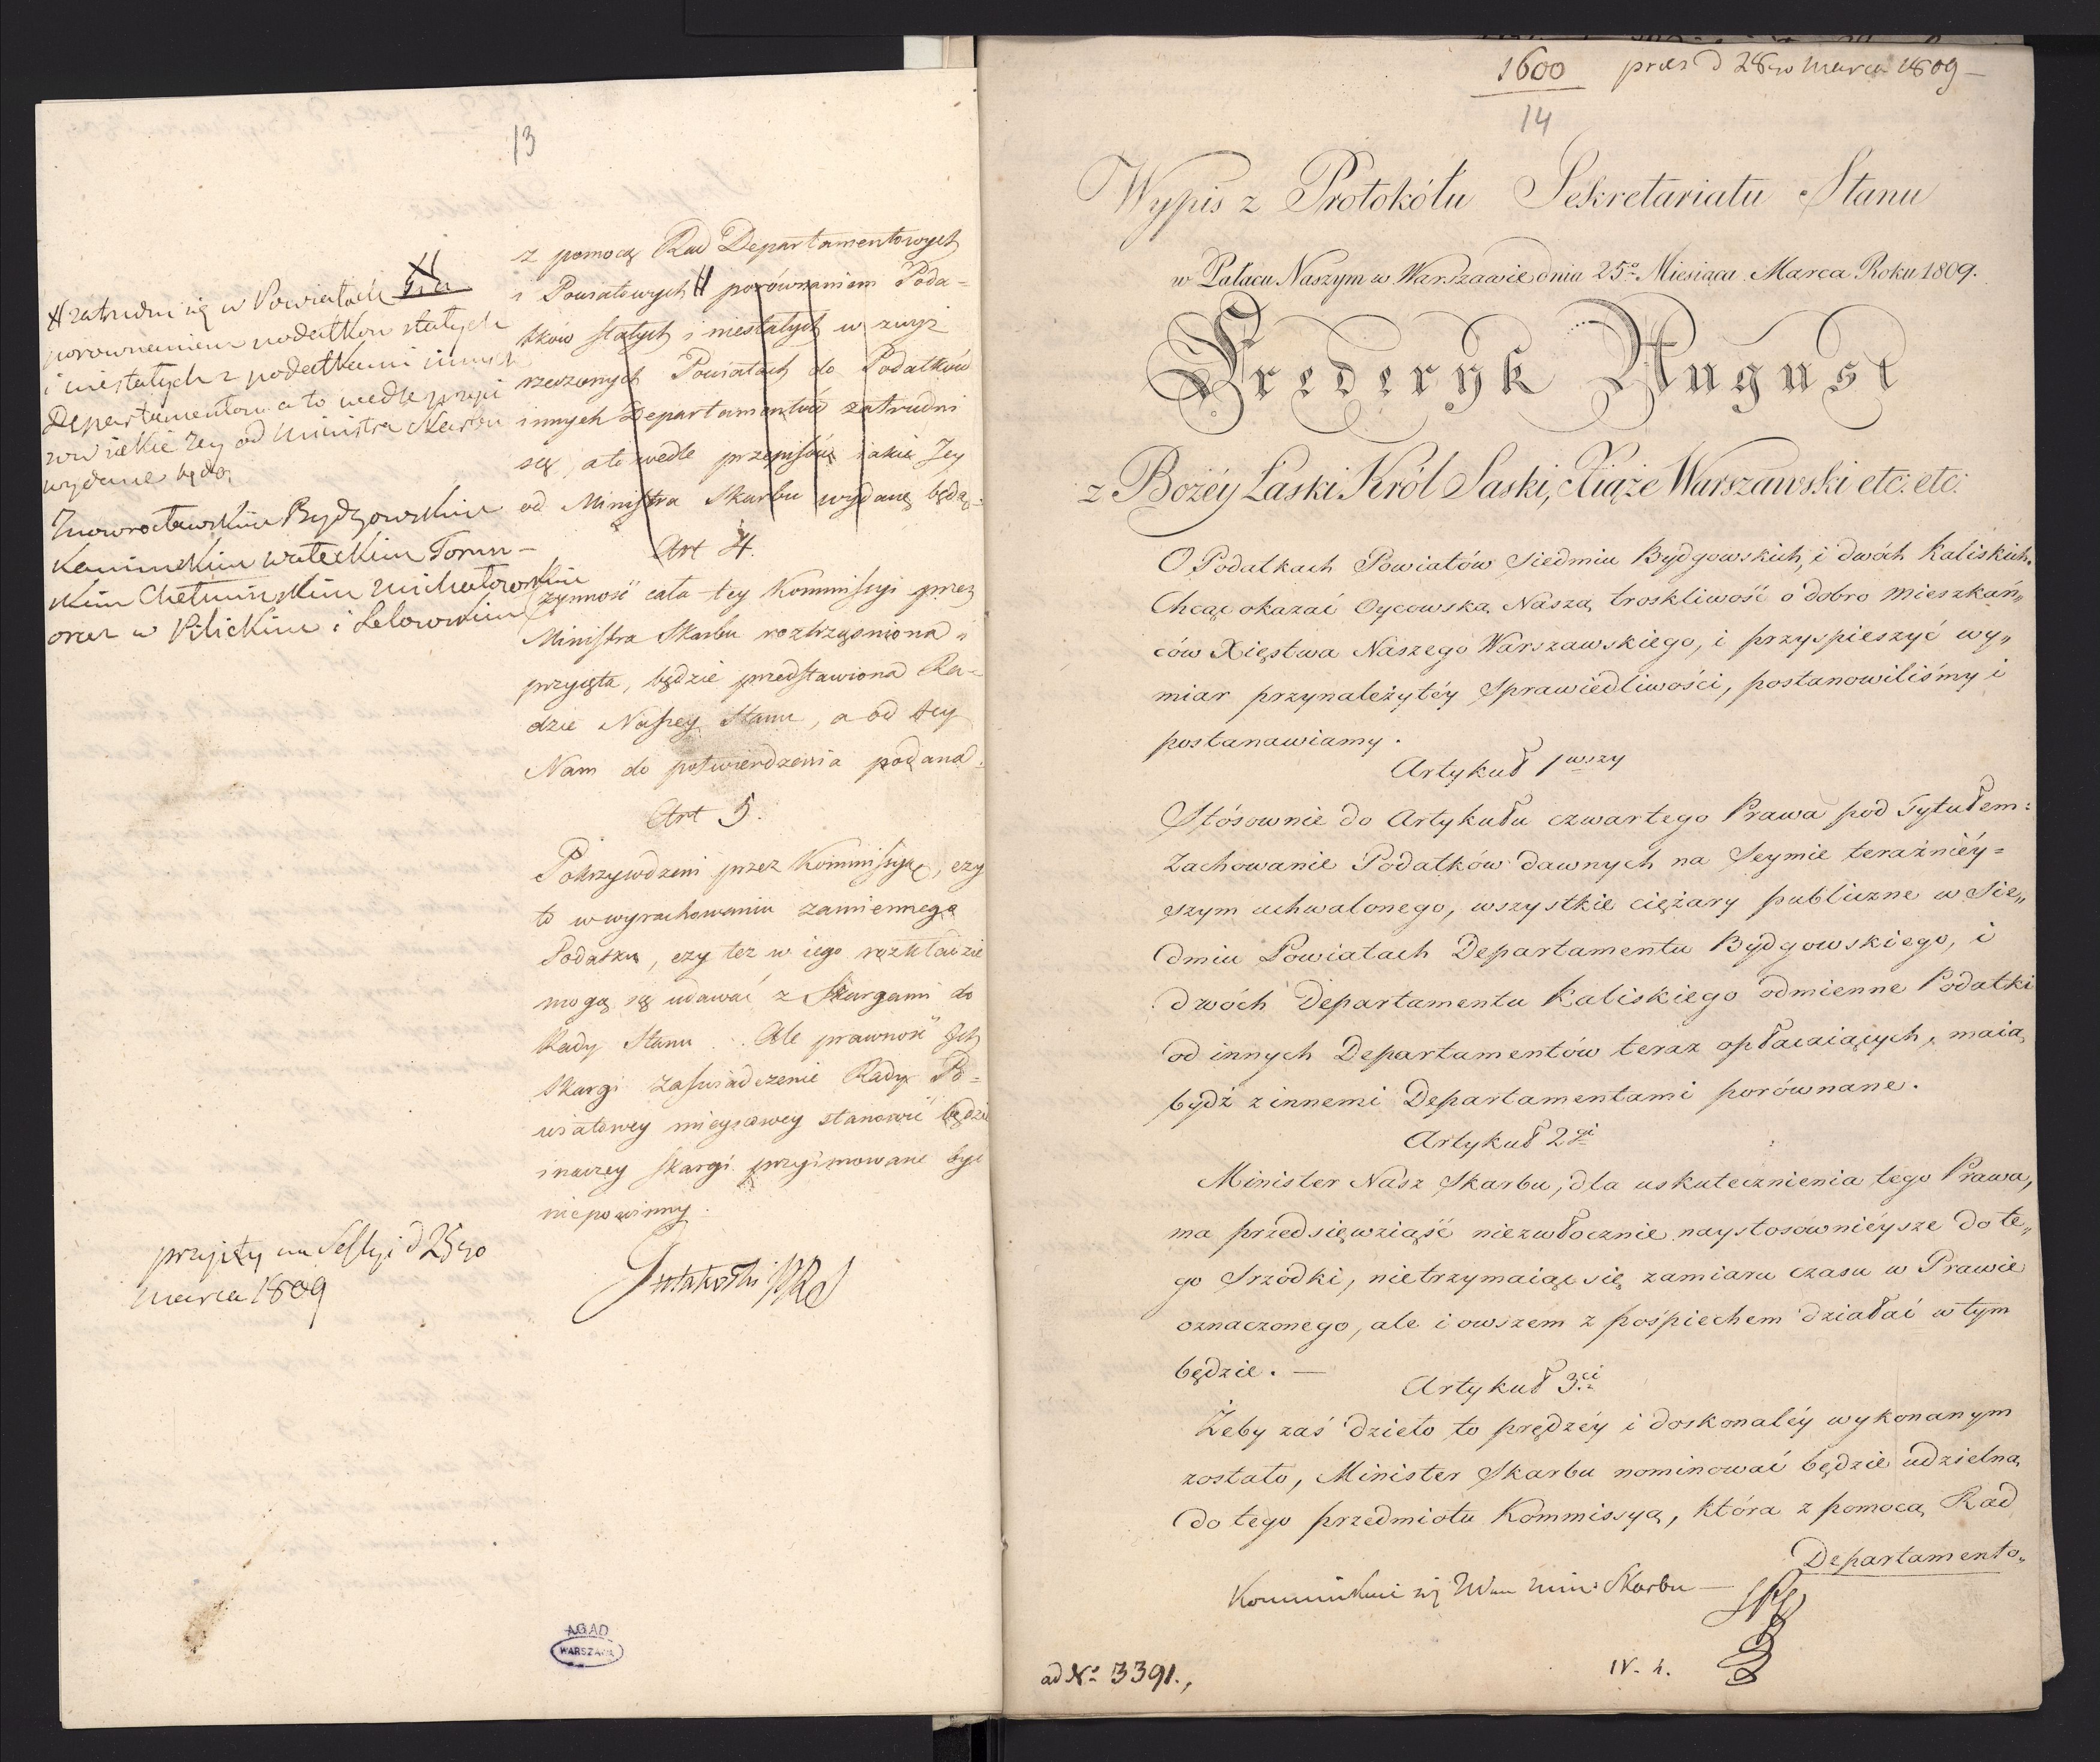 13
z pomocą Rad Departamentowych
i Powiatowych # porównaniem Poda-
tków stałych i niestałych w zwyż
rzeczonych Powiatach do Podatków
innych Departamentów zatrudni
się, a to wedle przepisów iakie Jey
od Ministra Skarbu wydane będą
Art 4.
Czynność cała tey Kommissyi przez
Ministra Skarbu roztrząśniona i
przyięta, będzie przedstawiona Ra-
dzie Naszey Stanu, a od tey
Nam do potwierdzenia podana.
Art 5.
Pokrzywdzeni przez Kommissyą, czy
to w wyrachowaniu zamiennego
Podatku, czy tez w iego rozkładzie
mogą się udawać z Skargami do
Rady Stanu. Ale prawność Jch
Skargi zaświadczenie Rady Po-
wiatowey mieyscowey stanowić będzie
inaczey skargi przyimowane być
niepowinny.
# zatrudni się w Powiatach
porownaniem podatkow stałych
i niestałych z podatkami innych
Departamentow a to wedle przepi
sow iakie Jey od Ministra Skarbu
wydane będą
Jnowrocławskim Bydgowskim
Kaminskim Wałeckim Torun-
skim Chełminskim Michałowskim
oraz w Pilickim i Lelowskim
przyięty na Sessyi d 25go
Marca 1809
AGAD
WARSZAWA
1600 prez d 28go Marca 1809
14
Wypis z Protokółu Sekretariatu Stanu
w Pałacu Naszym w Warszawie dnia 25o Miesiąca Marca Roku 1809.
Fryderyk August
z Bożéy Łaski Król Saski, Xiąże Warszawski etc: etc:
O Podatkach Powiatów Siedmiu Bydgowskich, i dwóch Kaliskich.
Chcąc okazać Oycowską Naszą troskliwość o dobro mieszkań„
ców Xięstwa Naszego Warszawskiego, i przyspieszyć wy„
miar przynależytéy Sprawiedliwości, postanowiliśmy i
postanawiamy.
Artykuł 1wszy
Stósownie do Artykułu czwartego Prawa pod Tytułem:
Zachowanie Podatków dawnych na Seymie teraźniéy=
szym uchwalonego, wszystkie ciężary publiczne w Sie„
dmiu Powiatach Departamentu Bydgowskiego, i
dwóch Departamentu Kaliskiego odmienne Podatki
od innych Departamentów teraz opłacaiących, maią
bydź z innemi Departamentami porównane.
Artykuł 2gi
Minister Nasz Skarbu, dla uskutecznienia tego Prawa,
ma przedsięwziąść niezwłocznie naystosówniéysze do te„
go Srzodki, nietrzymaiąc się zamiaru czasu w Prawie
oznaczonego, ale i owszem z pośpiechem działać w tym
będzie. —
Artykuł 3ci
Żeby zaś dzieło to prędzéy i doskonaléy wykonanym
zostało, Minister Skarbu nominować będzie udzielną
do tego przedmiotu Kommissyą, która z pomocą Rad
Departamento„
Kommunikuie się Wmu Min: Skarbu —
ad No 3391.,